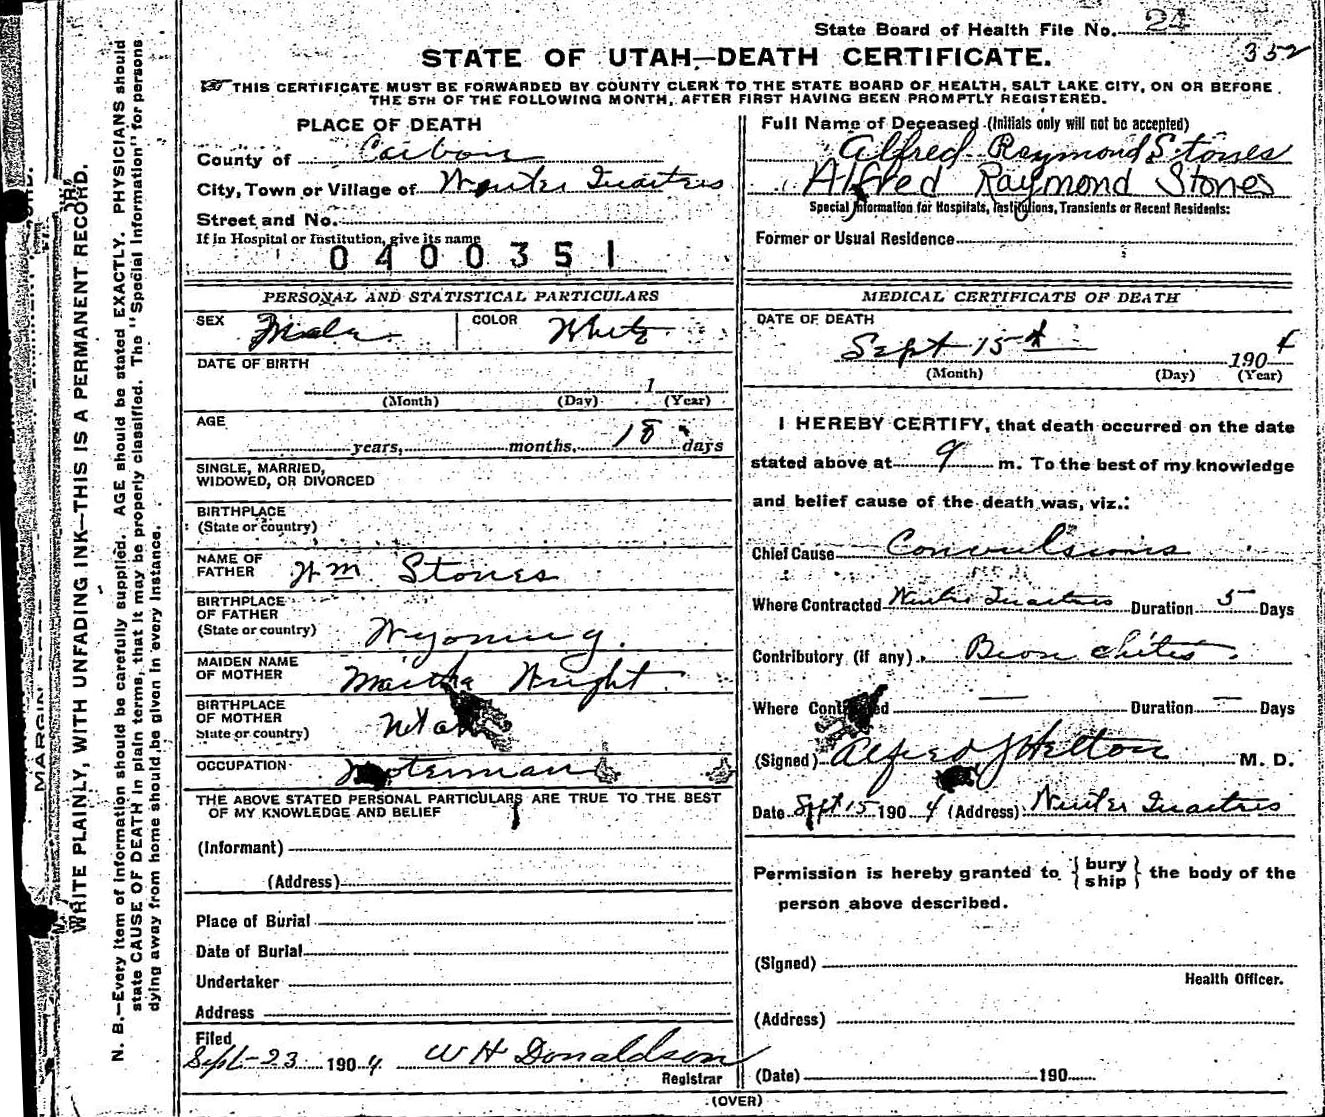 State Board of Health File No. 24
352
STATE OF UTAH—DEATH CERTIFICATE.
THIS CERTIFICATE MUST BE FORWARDED BY COUNTY CLERK TO THE STATE BOARD OF HEALTH, SALT LAKE CITY, ON OR BEFORE
THE 5TH OF THE FOLLOWING MONTH, AFTER FIRST HAVING BEEN PROMPTLY REGISTERED.
PLACE OF DEATH
County of Carbon
City, Town or Village of Winter Quarters
Street and No.
If in Hospital or Institution, give its name
0400351
Full Name of Deceased (Initials only will not be accepted)
Alfred Raymond Stones
Alfred Raymond Stones
Special Information for Hospitals, Institutions, Transients or Recent Residents:
Former or Usual Residence
PERSONAL AND STATISTICAL PARTICULARS
SEX Male COLOR White
DATE OF BIRTH
1
(Month) (Day) (Year)
AGE
years, months, 18 days
SINGLE, MARRIED,
WIDOWED, OR DIVORCED
BIRTHPLACE
(State or country)
NAME OF
FATHER Wm Stones
BIRTHPLACE
OF FATHER
(State or country) Wyoming.
MAIDEN NAME
OF MOTHER Martha Wright
BIRTHPLACE
OF MOTHER
State or country) Utah
OCCUPATION
THE ABOVE STATED PERSONAL PARTICULARS ARE TRUE TO THE BEST
OF MY KNOWLEDGE AND BELIEF
(Informant)
(Address)
Place of Burial
Date of Burial
Undertaker
Address
Filed
Sept-23 1904 W H Donaldson
Registrar
MEDICAL CERTIFICATE OF DEATH
DATE OF DEATH
Sept 15th 1904
(Month) (Day) (Year)
I HEREBY CERTIFY, that death occurred on the date
stated above at 9 m. To the best of my knowledge
and belief cause of the death was, viz.:
Chief Cause Convulsions
Where Contracted Winter Quarters Duration 5 Days
Contributory (if any) Bronchites
Where Contracted — Duration — Days
(Signed) Alfred J Helton M. D.
Date Sept 15 1904 (Address) Winter Quarters
Permission is hereby granted to { bury
ship } the body of the
person above described.
(Signed)
Health Officer.
(Address)
(Date) 190
(OVER)
WRITE PLAINLY, WITH UNFADING INK—THIS IS A PERMANENT RECORD.
N. B.—Every item of information should be carefully supplied. AGE should be stated EXACTLY. PHYSICIANS should
state CAUSE OF DEATH in plain terms, that it may be properly classified. The "Special Information" for persons
dying away from home should be given in every instance.
MARGIN